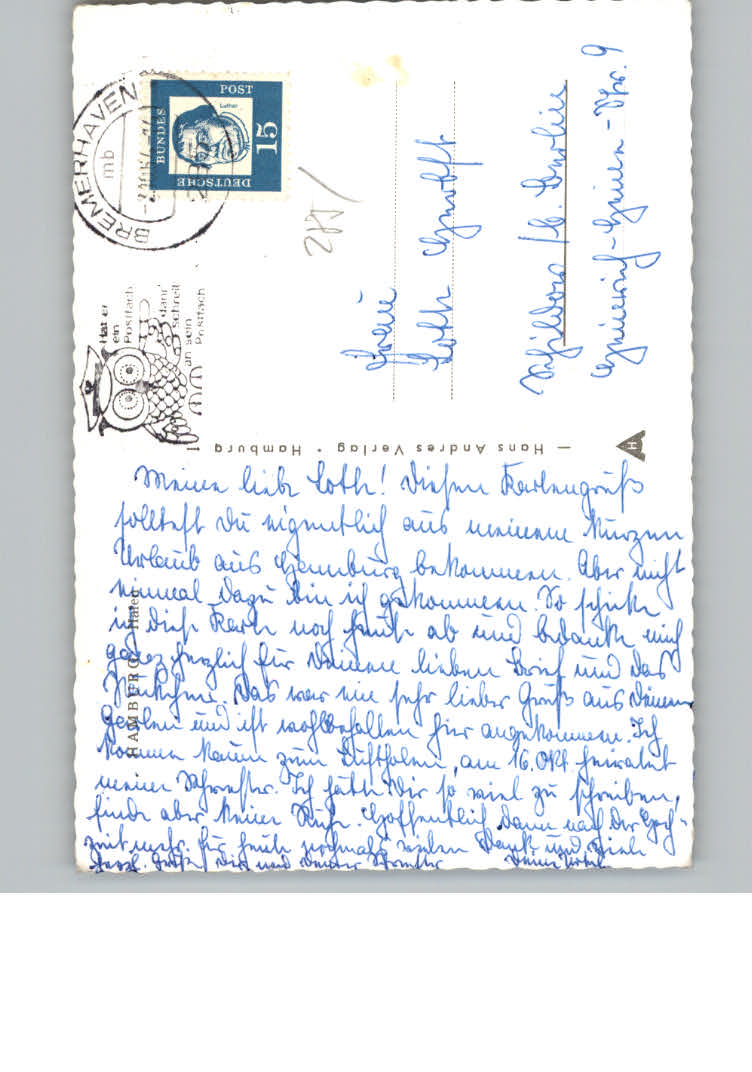 Meine liebe Lotte! Diesen Kartengruß
solltest Du eigentlich aus meinem kurzen
Urlaub aus Hamburg bekommen. Aber nicht
einmal dazu bin ich gekommen. So schicke
ich diese Karte noch heute ab und bedanke mich
ganz herzlich für Deinen lieben Brief und das
Das war ein sehr lieber Gruß aus Deinem
Garten und ist wohlbehalten hier angekommen. Ich
komme kaum zum Luftholen, am 16. Okt. heiratet
meine Schwester. Ich hätte Dir so viel zu schreiben,
finde aber keine Ruhe. Hoffentlich dann nach der Hoch-
zeit mehr. Für heute nochmals vielen Dank und viele
herzl. Grüße Dir und Deiner Schwester Deine
HAMBURG Hafen
— Hans Andres Verlag · Hamburg 1
H
Frau
Lotte
Schildow / b. Berlin
Heinrich-Heine-Str. 9
285/
DEUTSCHE
BUNDES
POST
15
Luther
BREMERHAVEN
mb
BREMERHAVEN
Hat er
ein
Postfach
dann
schreib
an sein
Postfach